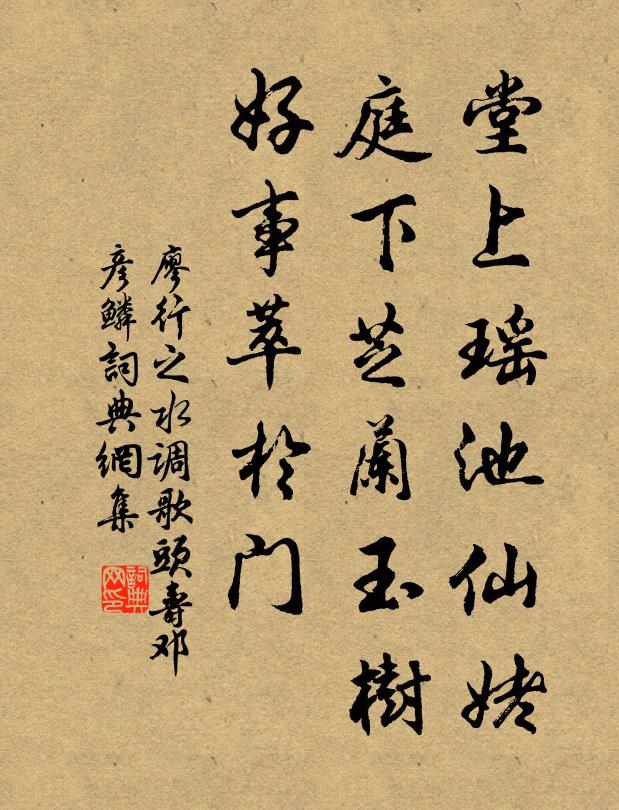 堂上瑶池仙姥
庭下芝蘭玉樹
好事萃於门
廖行之水调歌頭壽邓
彦鱗詞典網集
詞典网印